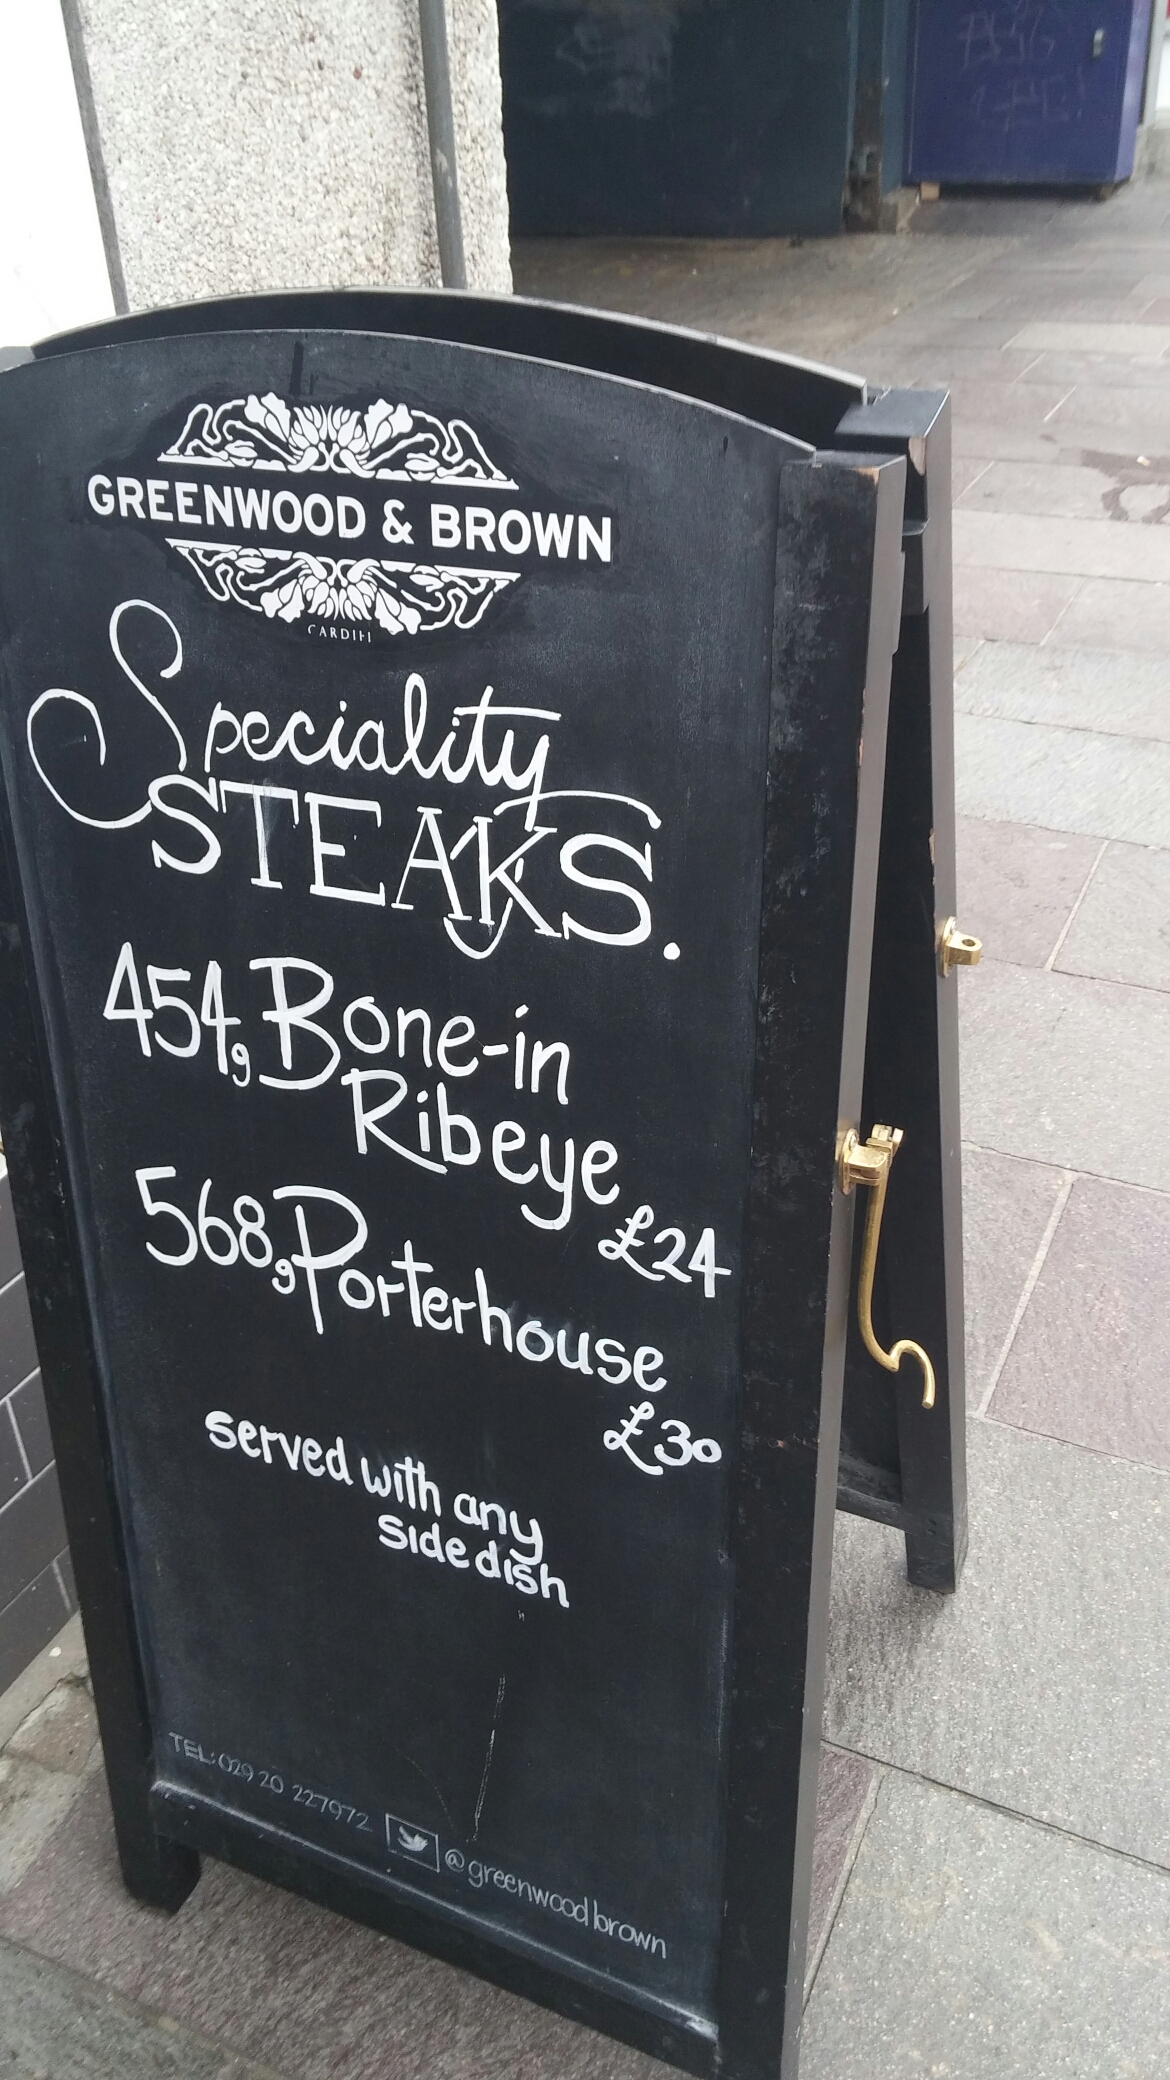 GREENWOOD & BROWN
CARDIFF
Speciality
STEAKS.
454g Bone-in
Ribeye
£24
568g Porterhouse
£30
served with any
side dish
TEL: 029 20 227972 @greenwoodbrown